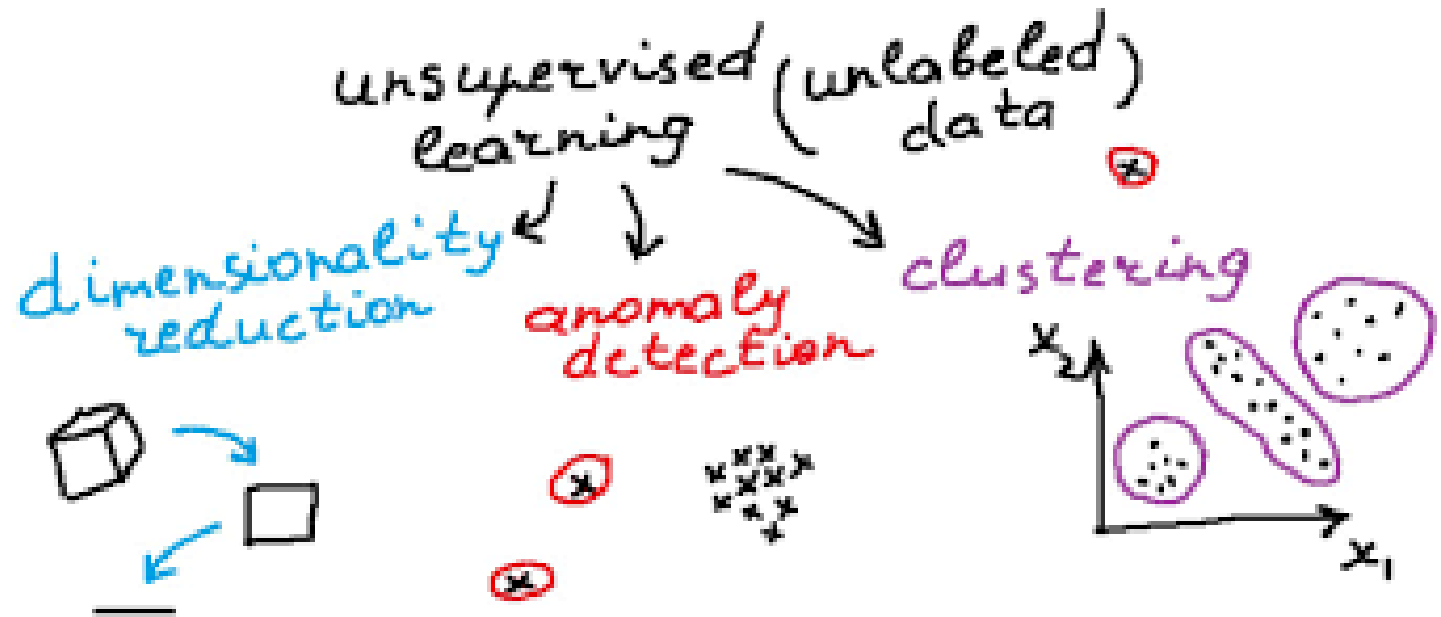 unsupervised (unlabeled)
learning data
dimensionality
reduction
anomaly
detection
clustering
x₂
x₁